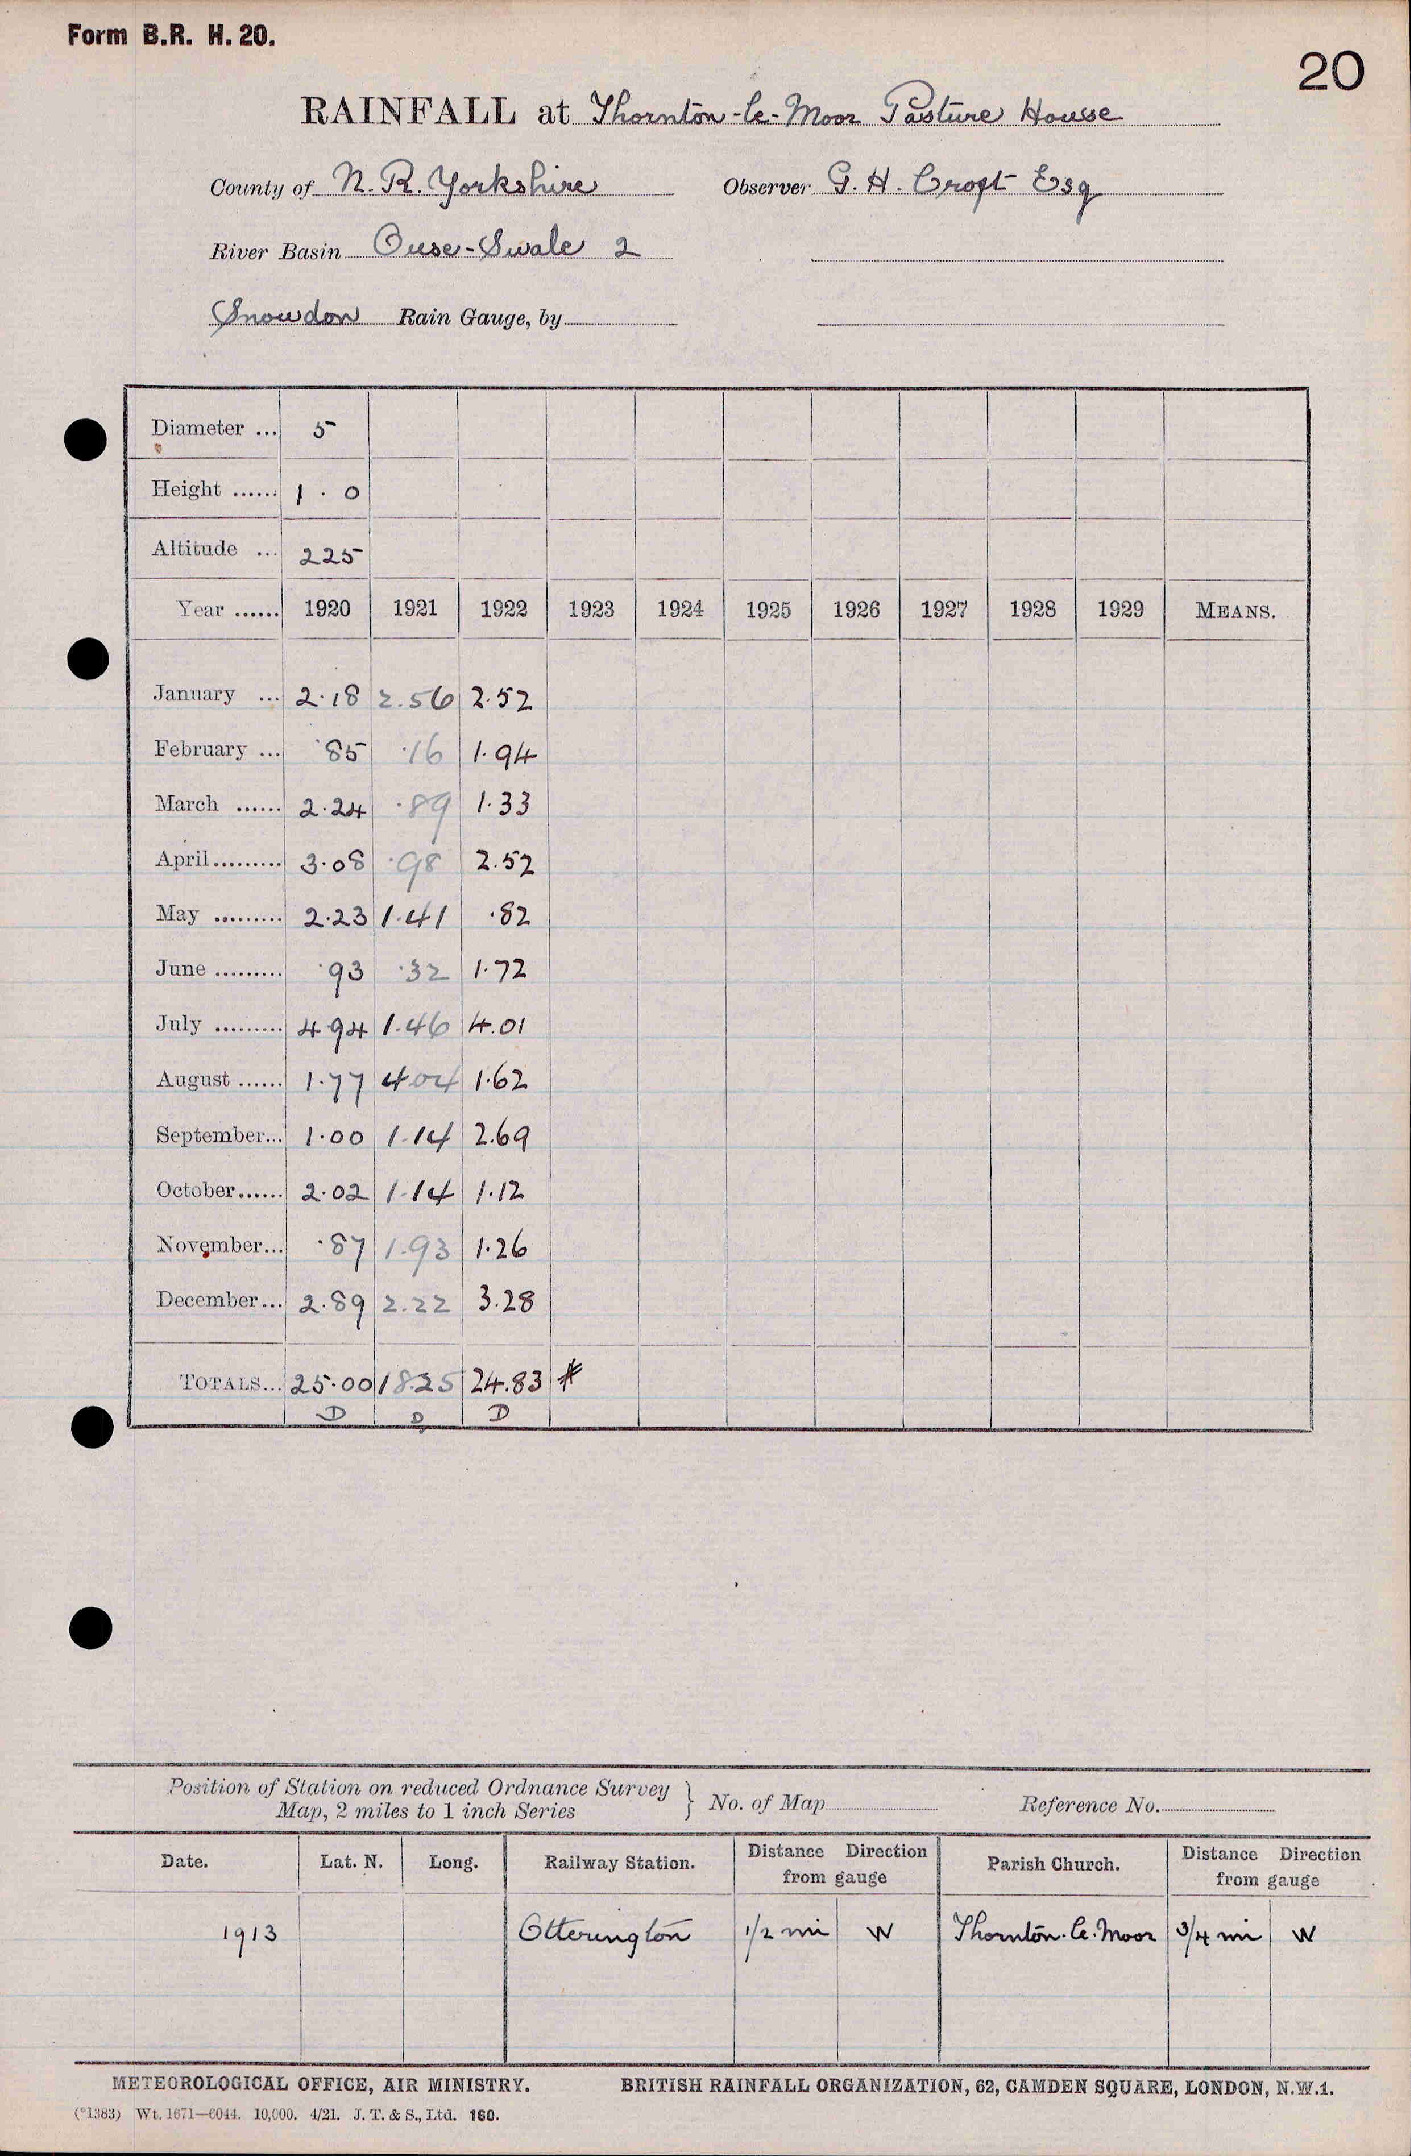 Form B.R. H. 20.
20
RAINFALL at Thornton-le-Moor Pasture House
County of N. R. Yorkshire Observer G. H. Croft Esq
River Basin Ouse-Swale 2
Snowdon Rain Gauge, by
Diameter ... 5
Height ...... 1 . 0
Altitude ... 225
Year ...... 1920 1921 1922 1923 1924 1925 1926 1927 1928 1929 MEANS.
January ... 2.18 2.56 2.52
February ... .85 .16 1.94
March ...... 2.24 .89 1.33
April ......... 3.08 .98 2.52
May ......... 2.23 1.41 .82
June ......... .93 .32 1.72
July ......... 4.94 1.46 4.01
August ...... 1.77 4.04 1.62
September... 1.00 1.14 2.69
October ...... 2.02 1.14 1.12
November... .87 1.93 1.26
December... 2.89 2.22 3.28
TOTALS... 25.00 18.25 24.83 *
D D D
Position of Station on reduced Ordnance Survey
Map, 2 miles to 1 inch Series } No. of Map Reference No.
Date. Lat. N. Long. Railway Station. Distance Direction from gauge Parish Church. Distance Direction from gauge
1913 Otterington 1/2 mi W Thornton-le-Moor 3/4 mi W
METEOROLOGICAL OFFICE, AIR MINISTRY. BRITISH RAINFALL ORGANIZATION, 62, CAMDEN SQUARE, LONDON, N.W.1.
(*1383) Wt. 1671—6044. 10,000. 4/21. J. T. & S., Ltd. 160.